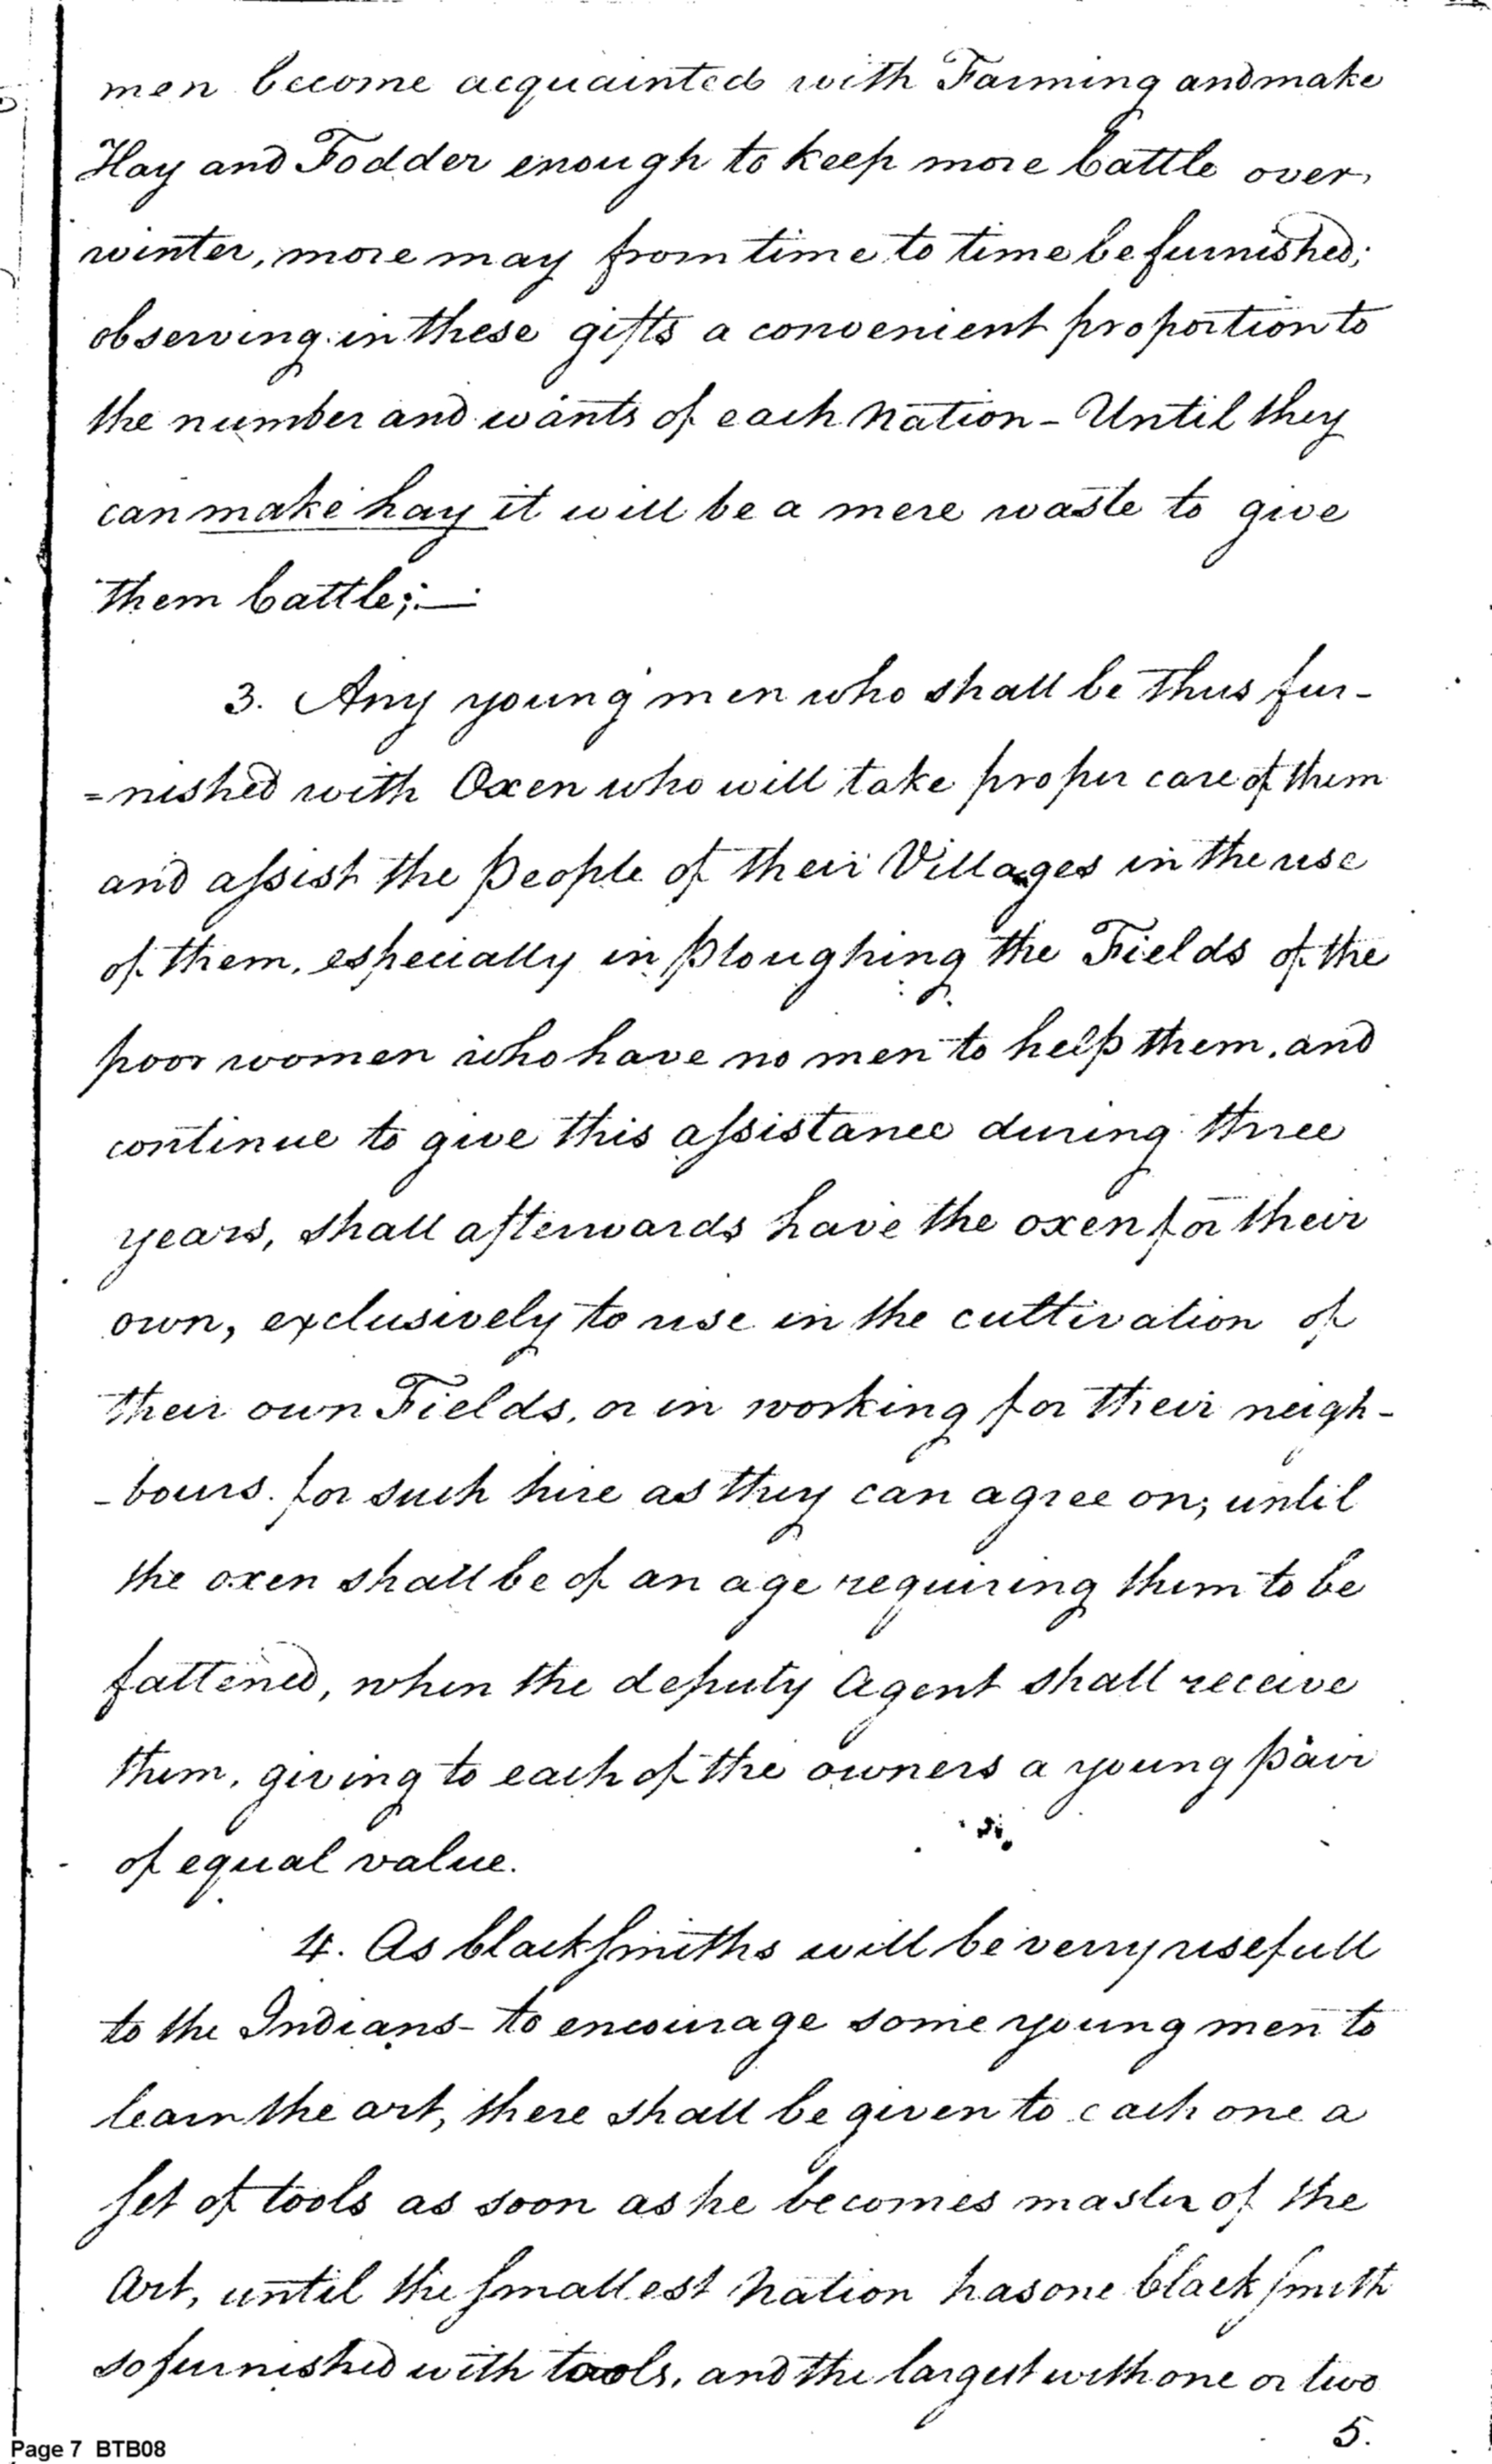 men become acquainted with Farming and make
Hay and Fodder enough to keep more Cattle over
winter, more may from time to time be furnished;
observing in these gifts a convenient proportion to
the number and wants of each Nation - Until they
can make hay it will be a mere waste to give
them Cattle; —
3. Any young men who shall be thus fur-
=nished with Oxen who will take proper care of them
and assist the People of their Villages in the use
of them, especially in Ploughing the Fields of the
poor women who have no men to help them, and
continue to give this assistance during three
years, shall afterwards have the oxen for their
own, exclusively to use in the cultivation of
their own Fields, or in working for their neigh-
-bours. for such hire as they can agree on; until
the oxen shall be of an age requiring them to be
fattened, when the deputy Agent shall receive
them, giving to each of the owners a young Pair
of equal value.
4. As blacksmiths will be very usefull
to the Indians - to encourage some young men to
learn the art, there shall be given to each one a
set of tools as soon as he becomes master of the
Art, until the smallest Nation has one blacksmith
so furnished with tools, and the largest with one or two
5.
Page 7 BTB08